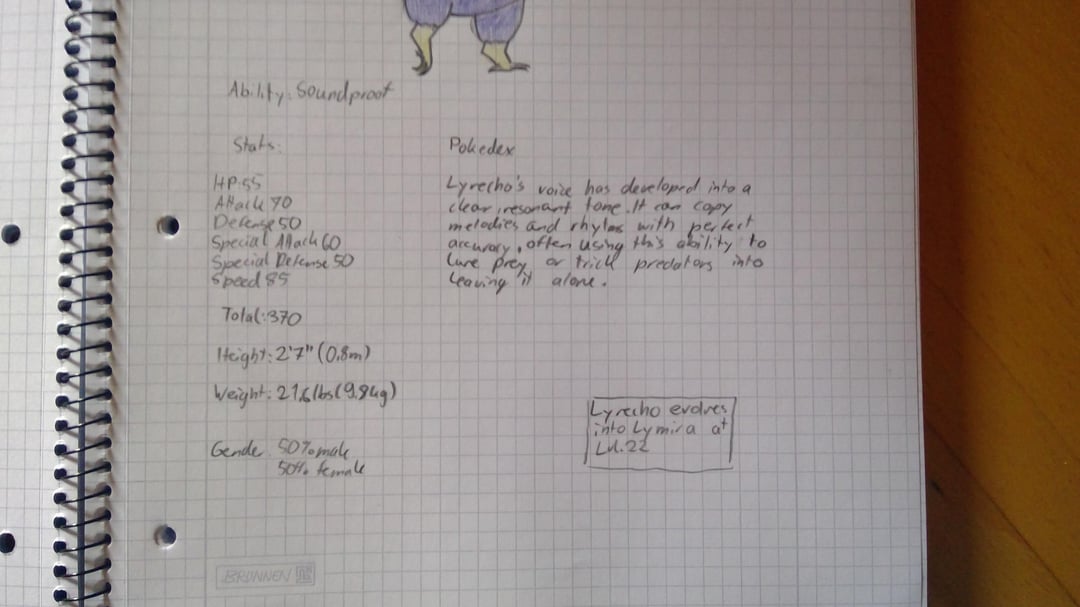 Ability: Soundproof
Stats:
HP:55
Attack 70
Defense 50
Special Attack 60
Special Defense 50
Speed 85
Total:370
Height: 2'7" (0,8m)
Weight: 21,6 lbs (9.8kg)
Gender 50% male
50% female
Pokedex
Lyrecho's voice has developed into a
clear, resonant tone. It can copy
melodies and rhylms with perfect
accuracy, often using this ability to
lure prey or trick predators into
leaving it alone.
Lyrecho evolves
into Lymira at
Lvl.22
BRUNNEN